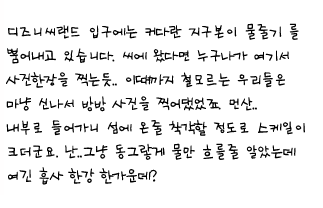 디즈니씨랜드 입구에는 커다란 지구본이 물줄기 를
뿜어내고 있습니다. 씨에 왔다면 누구나가 여기서
사진한장을 찍는듯.. 이때까지 철모르는 우리들은
마냥 신나서 방방 사진을 찍어댔었죠. 먼산..
내부로 들어가니 섬에 온줄 착각할 정도로 스케일이
크더군요. 난..그냥 동그랗게 물만 흐를줄 알았는데
여긴 흡사 한강 한가운데?